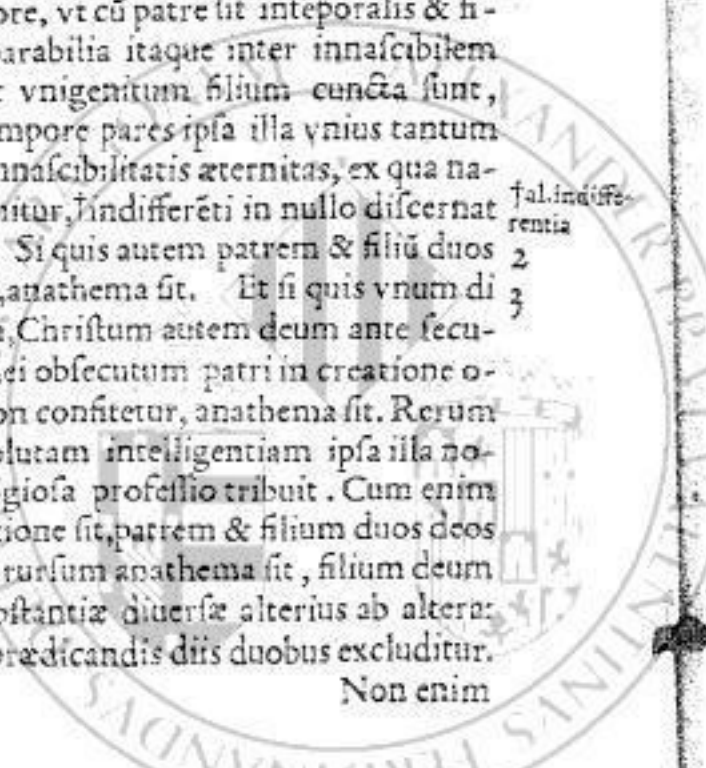 ore, vt cū patre ſit intēporalis & fi-
parabilia itaque inter innaſcibilem
t vnigenitum filium cuncta ſunt,
mpore pares ipſa illa vnius tantum
nnaſcibilitatis æternitas, ex qua na-
nitur, †indifferēti in nullo diſcernat
Si quis autem patrem & filiū duos
, anathema ſit. Et ſi quis vnum di
, Chriſtum autem deum ante ſecu-
ei obſecutum patri in creatione o-
on confitetur, anathema ſit. Rerum
olutam intelligentiam ipſa illa no-
gioſa profeſſio tribuit. Cum enim
tione ſit, patrem & filium duos deos
rurſum anathema ſit, filium deum
bſtantiæ diuerſæ alterius ab altera:
prædicandis diis duobus excluditur.
Non enim
†al. indiffe-
rentia
2
3